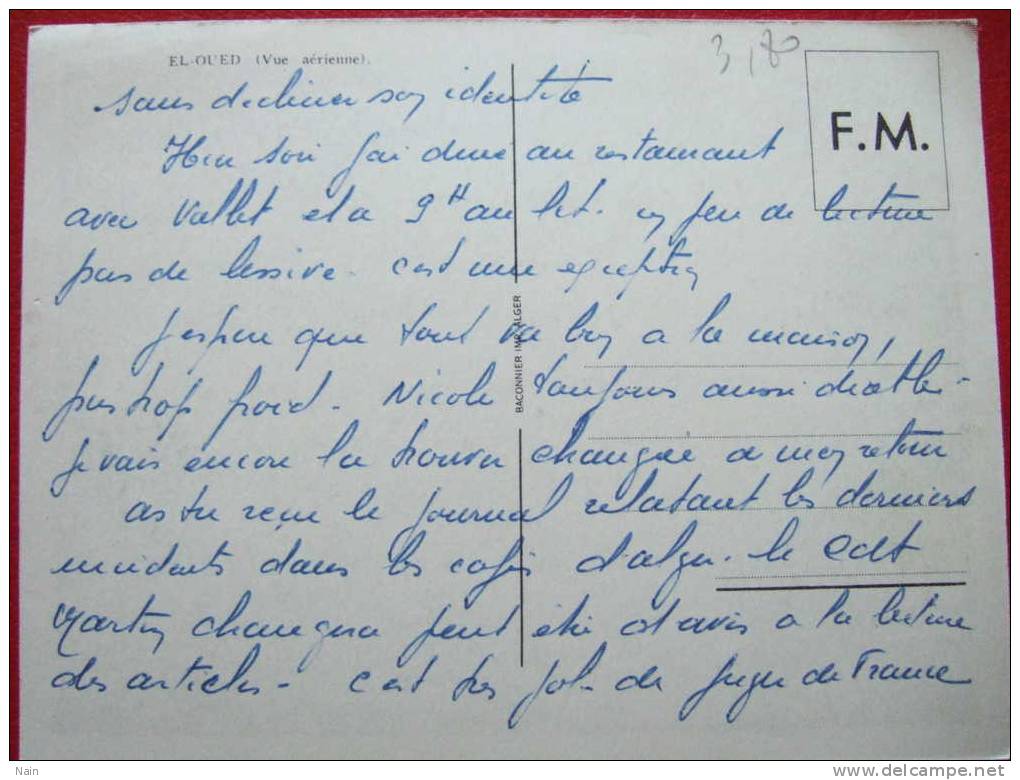 EL-OUED (Vue aérienne).
3,80
F.M.
sans decliner son identite
Hier soir j'ai diné au restaurant
avec Vallet et a 9H au lit. un peu de lecture
pas de lessive. c'est une exception
J'espere que tout va bien a la maison,
pas trop froid. Nicole toujours aussi diable.
je vais encore la trouver changée a mon retour
as tu reçu le journal relatant les derniers
incidents dans les cafés d'alger. le Cdt
Martin changera peut être d'avis a la lecture
des articles. c'est tres joli de juger de France
BACONNIER IMP. ALGER
Nain
www.delcampe.net